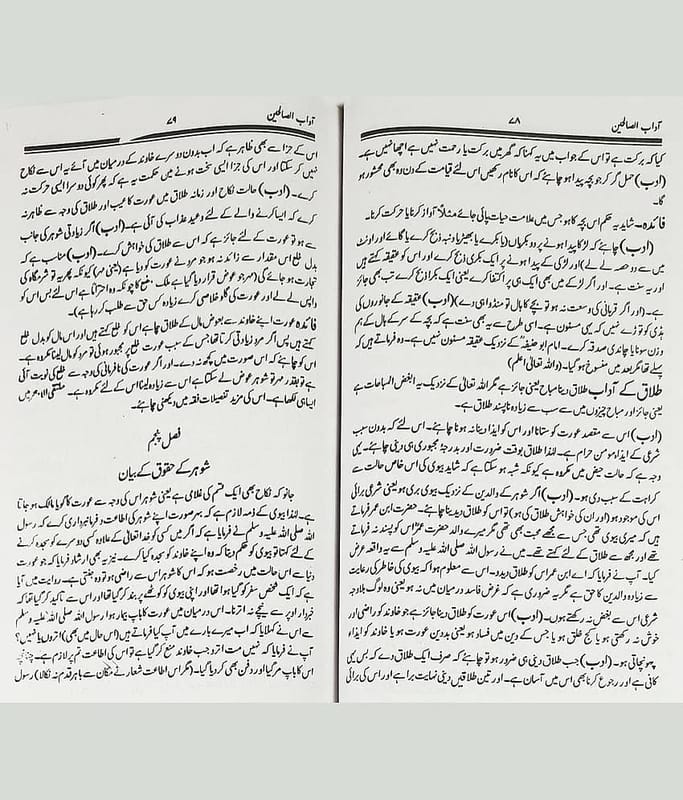 آداب الصالحین ۷۸
کیا کہ برکت ہے تو اس کے جواب میں یہ کہنا کہ گھر میں برکت یا رحمت نہیں ہے اچھا نہیں ہے۔
(ادب) حمل گر کر جو بچہ پیدا ہو چاہئے کہ اس کا نام رکھیں اس لئے قیامت کے دن وہ بھی محشور ہو
گا۔
فائدہ۔ شاید یہ حکم اس بچہ کا ہو جس میں علامت حیات پائی جائے مثلاً آواز کرنا یا حرکت کرنا۔
(ادب) چاہئے کہ لڑکا پیدا ہونے پر دو بکریاں (یا بکرے یا بھیڑ یا دنبہ ذبح کرے یا گائے اور اونٹ
میں سے دو حصہ لے لے) اور لڑکی کے پیدا ہونے پر ایک بکری ذبح کرے اور اس کو عقیقہ کہتے ہیں
اور یہ سنت ہے۔ اور اگر لڑکے میں بھی ایک ہی پر اکتفا کرے یعنی ایک بکرا ذبح کرے تب بھی جائز
ہے۔ (اور اگر قربانی کی وسعت نہ ہو تو بچے کا بال تو منڈوا ہی دے) (ادب) عقیقہ کے جانوروں کی
ہڈی کو توڑے نہیں کہ یہی مسنون ہے۔ اسی طرح سے یہ بھی سنت ہے کہ بچہ کے سر کے بال کے ہم
وزن سونا یا چاندی صدقہ کرے۔ امام ابو حنیفہؒ کے نزدیک عقیقہ مسنون نہیں ہے۔ وہ فرماتے ہیں کہ
پہلے تھا مگر بعد میں منسوخ ہو گیا۔ (واللہ تعالیٰ اعلم)
طلاق کے آداب طلاق دینا مباح یعنی جائز ہے مگر اللہ تعالیٰ کے نزدیک یہ ابغض المباحات ہے
یعنی جائز اور مباح چیزوں میں سے سب سے زیادہ ناپسند طلاق ہے۔
(ادب) اس سے مقصد عورت کو ستانا اور اس کو ایذا دینا نہ ہونا چاہئے۔ اس لئے کہ بدون سبب
شرعی کے ایذاء مومن حرام ہے۔ لہٰذا طلاق بوقت ضرورت اور بدرجۂ مجبوری ہی دینی چاہئے۔ یہی
وجہ ہے کہ حالت حیض میں مکروہ ہے کیونکہ شبہ ہو سکتا ہے کہ شاید بیوی کی اس خاص حالت سے
کراہت کے سبب دی ہو۔ (ادب) اگر شوہر کے والدین کے نزدیک بیوی بری ہو یعنی شرعی برائی
اس کی موجود ہو (اور ان کی خواہش طلاق کی ہو) تو اس کو طلاق دیدینا چاہئے۔ حضرت ابن عمرؓ فرماتے
ہیں کہ میری بیوی تھی جس سے مجھے محبت بھی تھی مگر میرے والد حضرت عمرؓ اس کو پسند نہ فرماتے
تھے اور مجھ سے طلاق کے لئے کہتے تھے۔ میں نے رسول اللہ صلی اللہ علیہ وسلم سے یہ واقعہ عرض
کیا۔ آپ نے فرمایا کہ اے ابن عمرؓ اس کو طلاق دیدو۔ اس سے معلوم ہوا کہ بیوی کی خاطر کی رعایت
سے زیادہ والدین کا حق ہے مگر یہ ضروری ہے کہ غرض فاسد درمیان میں نہ ہو یعنی وہ لوگ بلا وجہ
شرعی اس سے بغض نہ رکھتے ہوں۔ (ادب) اس عورت کو طلاق دینا جائز ہے جو خاوند کو راضی اور
خوش نہ رکھتی ہو یا کج خلق ہو یا جس کے دین میں فساد ہو یعنی بد دین عورت ہو یا خاوند کو ایذاء
پہونچاتی ہو۔ (ادب) جب طلاق دینی ہی ضرور ہو تو چاہئے کہ صرف ایک طلاق دے کہ بس یہی
کافی ہے اور رجوع کرنا بھی اس میں آسان ہے۔ اور تین طلاقیں دینی نہایت برا ہے اور اس کی برائی
آداب الصالحین ۷۹
اس کے جزا سے بھی ظاہر ہے کہ اب بدون دوسرے خاوند کے درمیان میں آئے یہ اس سے نکاح
نہیں کر سکتا اور اس کی جزا ایسی سخت ہونے میں حکمت یہ ہے کہ پھر کوئی دوسرا ایسی حرکت نہ
کرے۔ (ادب) حالت نکاح اور زمانہ طلاق میں عورت کا عیب اور طلاق کی وجہ سے ظاہر نہ
کرے کہ ایسا کرنے والے کے لئے وعید عذاب کی آئی ہے۔ (ادب) اگر زیادتی شوہر کی جانب
سے ہو تو عورت کے لئے جائز ہے کہ اس سے طلاق کی خواہش کرے۔ (ادب) مناسب ہے کہ
بدل خلع اس مقدار سے زائد نہ ہو جو مرد نے عورت کو دیا ہے (یعنی مہر) کیونکہ پھر یہ تو شرمگاہ کی
تجارت ہو جائے گی (مہر جو عوض قرار دیا گیا ہے ملک بضع کا چونکہ وہ احتراماً ہے اس لئے بس اس کو
واپس لے لے اور عورت کی گلو خلاصی کرے زیادہ کس حق سے طلب کر رہا ہے)۔
فائدہ عورت اپنے خاوند سے بعوض مال کے طلاق چاہے اس کو خلع کہتے ہیں اور اس مال کو بدل خلع
کہتے ہیں پس اگر مرد زیادتی کرتا تھا جس کے سبب عورت خلع پر مجبور ہوئی تو مرد کو مال لینا مکروہ ہے۔
اس کو چاہئے کہ اس صورت میں کچھ نہ دے۔ اور اگر عورت کی نافرمانی کی وجہ سے خلع کی نوبت آئی
ہے تو بقدر مہر تو شوہر عوض لے سکتا ہے اس سے زیادہ لینا اس کے لئے مکروہ ہے۔ ملتقی الابحر میں
ایسا ہی لکھا ہے۔ اس کی مزید تفصیلات فقہ میں دیکھنی چاہئے۔
فصل پنجم
شوہر کے حقوق کے بیان
جانو کہ نکاح بھی ایک قسم کی غلامی ہے یعنی شوہر اس کی وجہ سے عورت کا گویا مالک ہو جاتا
ہے۔ لہٰذا بیوی کے ذمہ لازم ہے کہ بہر صورت اپنے شوہر کی اطاعت و فرمانبرداری کرے کہ رسول
اللہ صلی اللہ علیہ وسلم نے فرمایا ہے کہ اگر میں کسی کو خدا تعالیٰ کے علاوہ کسی دوسرے کو سجدہ کرنے
کے لئے کہتا تو بیوی کو حکم دیتا کہ وہ اپنے خاوند کو سجدہ کیا کرے۔ نیز یہ بھی ارشاد فرمایا کہ جو عورت
دنیا سے اس حالت میں رخصت ہو کہ اس کا شوہر اس سے راضی ہو تو وہ جنتی ہے۔ روایت میں آیا
ہے کہ ایک شخص سفر کو گیا ہوا تھا اور اپنی بیوی کو کوٹھے پر بند کر گیا تھا اور اس سے تاکید کر گیا تھا کہ
خبردار اوپر سے نیچے نہ اترنا۔ اس درمیان میں عورت کا باپ بیمار ہوا رسول اللہ صلی اللہ علیہ وسلم
سے اس نے کہلایا کہ اب میرے بارے میں آپ کیا فرماتے ہیں (اس حال میں بھی) اتروں یا نہیں؟
آپ نے فرمایا کہ نہیں مت اترو جب خاوند منع کر گیا ہے تو اس کی اطاعت تم پر لازم ہے۔ چنانچہ
اس کا باپ مر گیا اور دفن بھی کر دیا گیا۔ (مگر اس اطاعت شعار نے مکان سے باہر قدم نہ نکالا) رسول